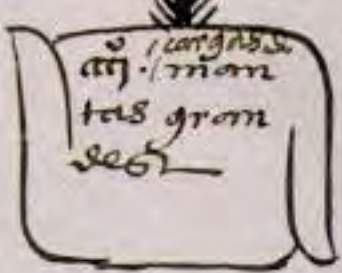 cargas de
man
tas gran
des